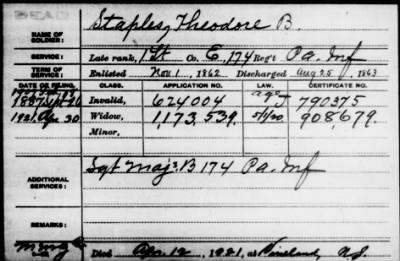 DEAD
NAME OF SOLDIER: Staples, Theodore B.
SERVICE: Late rank, 1 Lt Co. E, 174 Reg't Pa. Inf
TERM OF SERVICE: Enlisted Nov 1, 1862 Discharged Aug 25, 1863
DATE OF FILING. CLASS. APPLICATION NO. LAW. CERTIFICATE NO.
1887 Invalid, 624004 J 790375
1921 Apr 30 Widow, 1,173,539. 5/1/20. 908,679.
Minor,
ADDITIONAL SERVICES: Sgt Maj. 174 Pa. Inf
REMARKS:
Died Apr. 12, 1921, at Vineland, N.J.